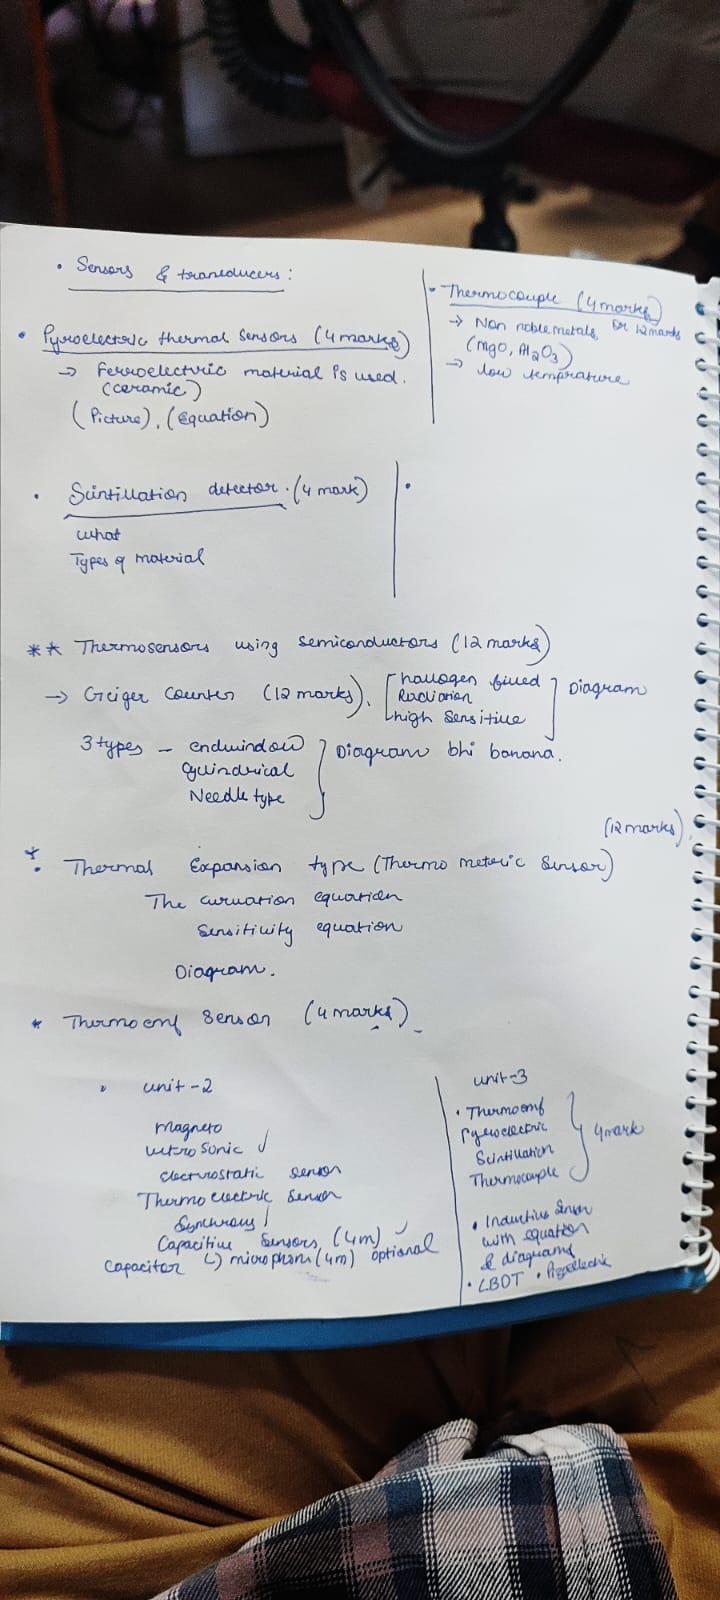 • Sensors & transducers:
• Pyroelectric thermal sensors (4 marks)
→ Ferroelectric material is used.
(ceramic)
(Picture), (Equation)
• Thermocouple (4 marks)
or 12 marks
→ Non noble metals
(MgO, Al2O3)
→ low temprature
• Scintillation detector. (4 mark)
what
Types of material
•
** Thermosensors using semiconductors (12 marks)
→ Geiger Counter (12 marks),
hallogen filled
Radiation
high sensitive
Diagram
3 types - endwindow
Cylindrical
Needle type
Diagram bhi banana.
(12 marks)
* Thermal Expansion type (Thermo meteric sensor)
The curuation equation
Sensitivity equation
Diagram.
* Thermoemf Sensor (4 marks)
• unit-2
Magneto
ultrosonic
electrostatic sensor
Thermoelectric sensor
Capacitive Sensors (4m)
Capacitor ↳ microphons (4m) optional
unit-3
• Thermoemf
Pyroelectric
Scintillation
Thermocouple
4 mark
• Inductive Sensor
with equation
& diagrams
•